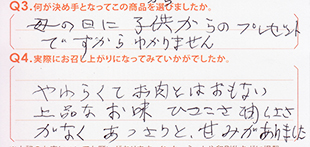 Q3.何が決め手となってこの商品を選びましたか。
母の日に子供からのプレゼント
ですからわかりません
Q4.実際にお召し上がりになってみていかがでしたか。
やわらくてお肉とはおもない
上品なお味 ひつこさ油くささ
がなくあっさりと、甘みがありました